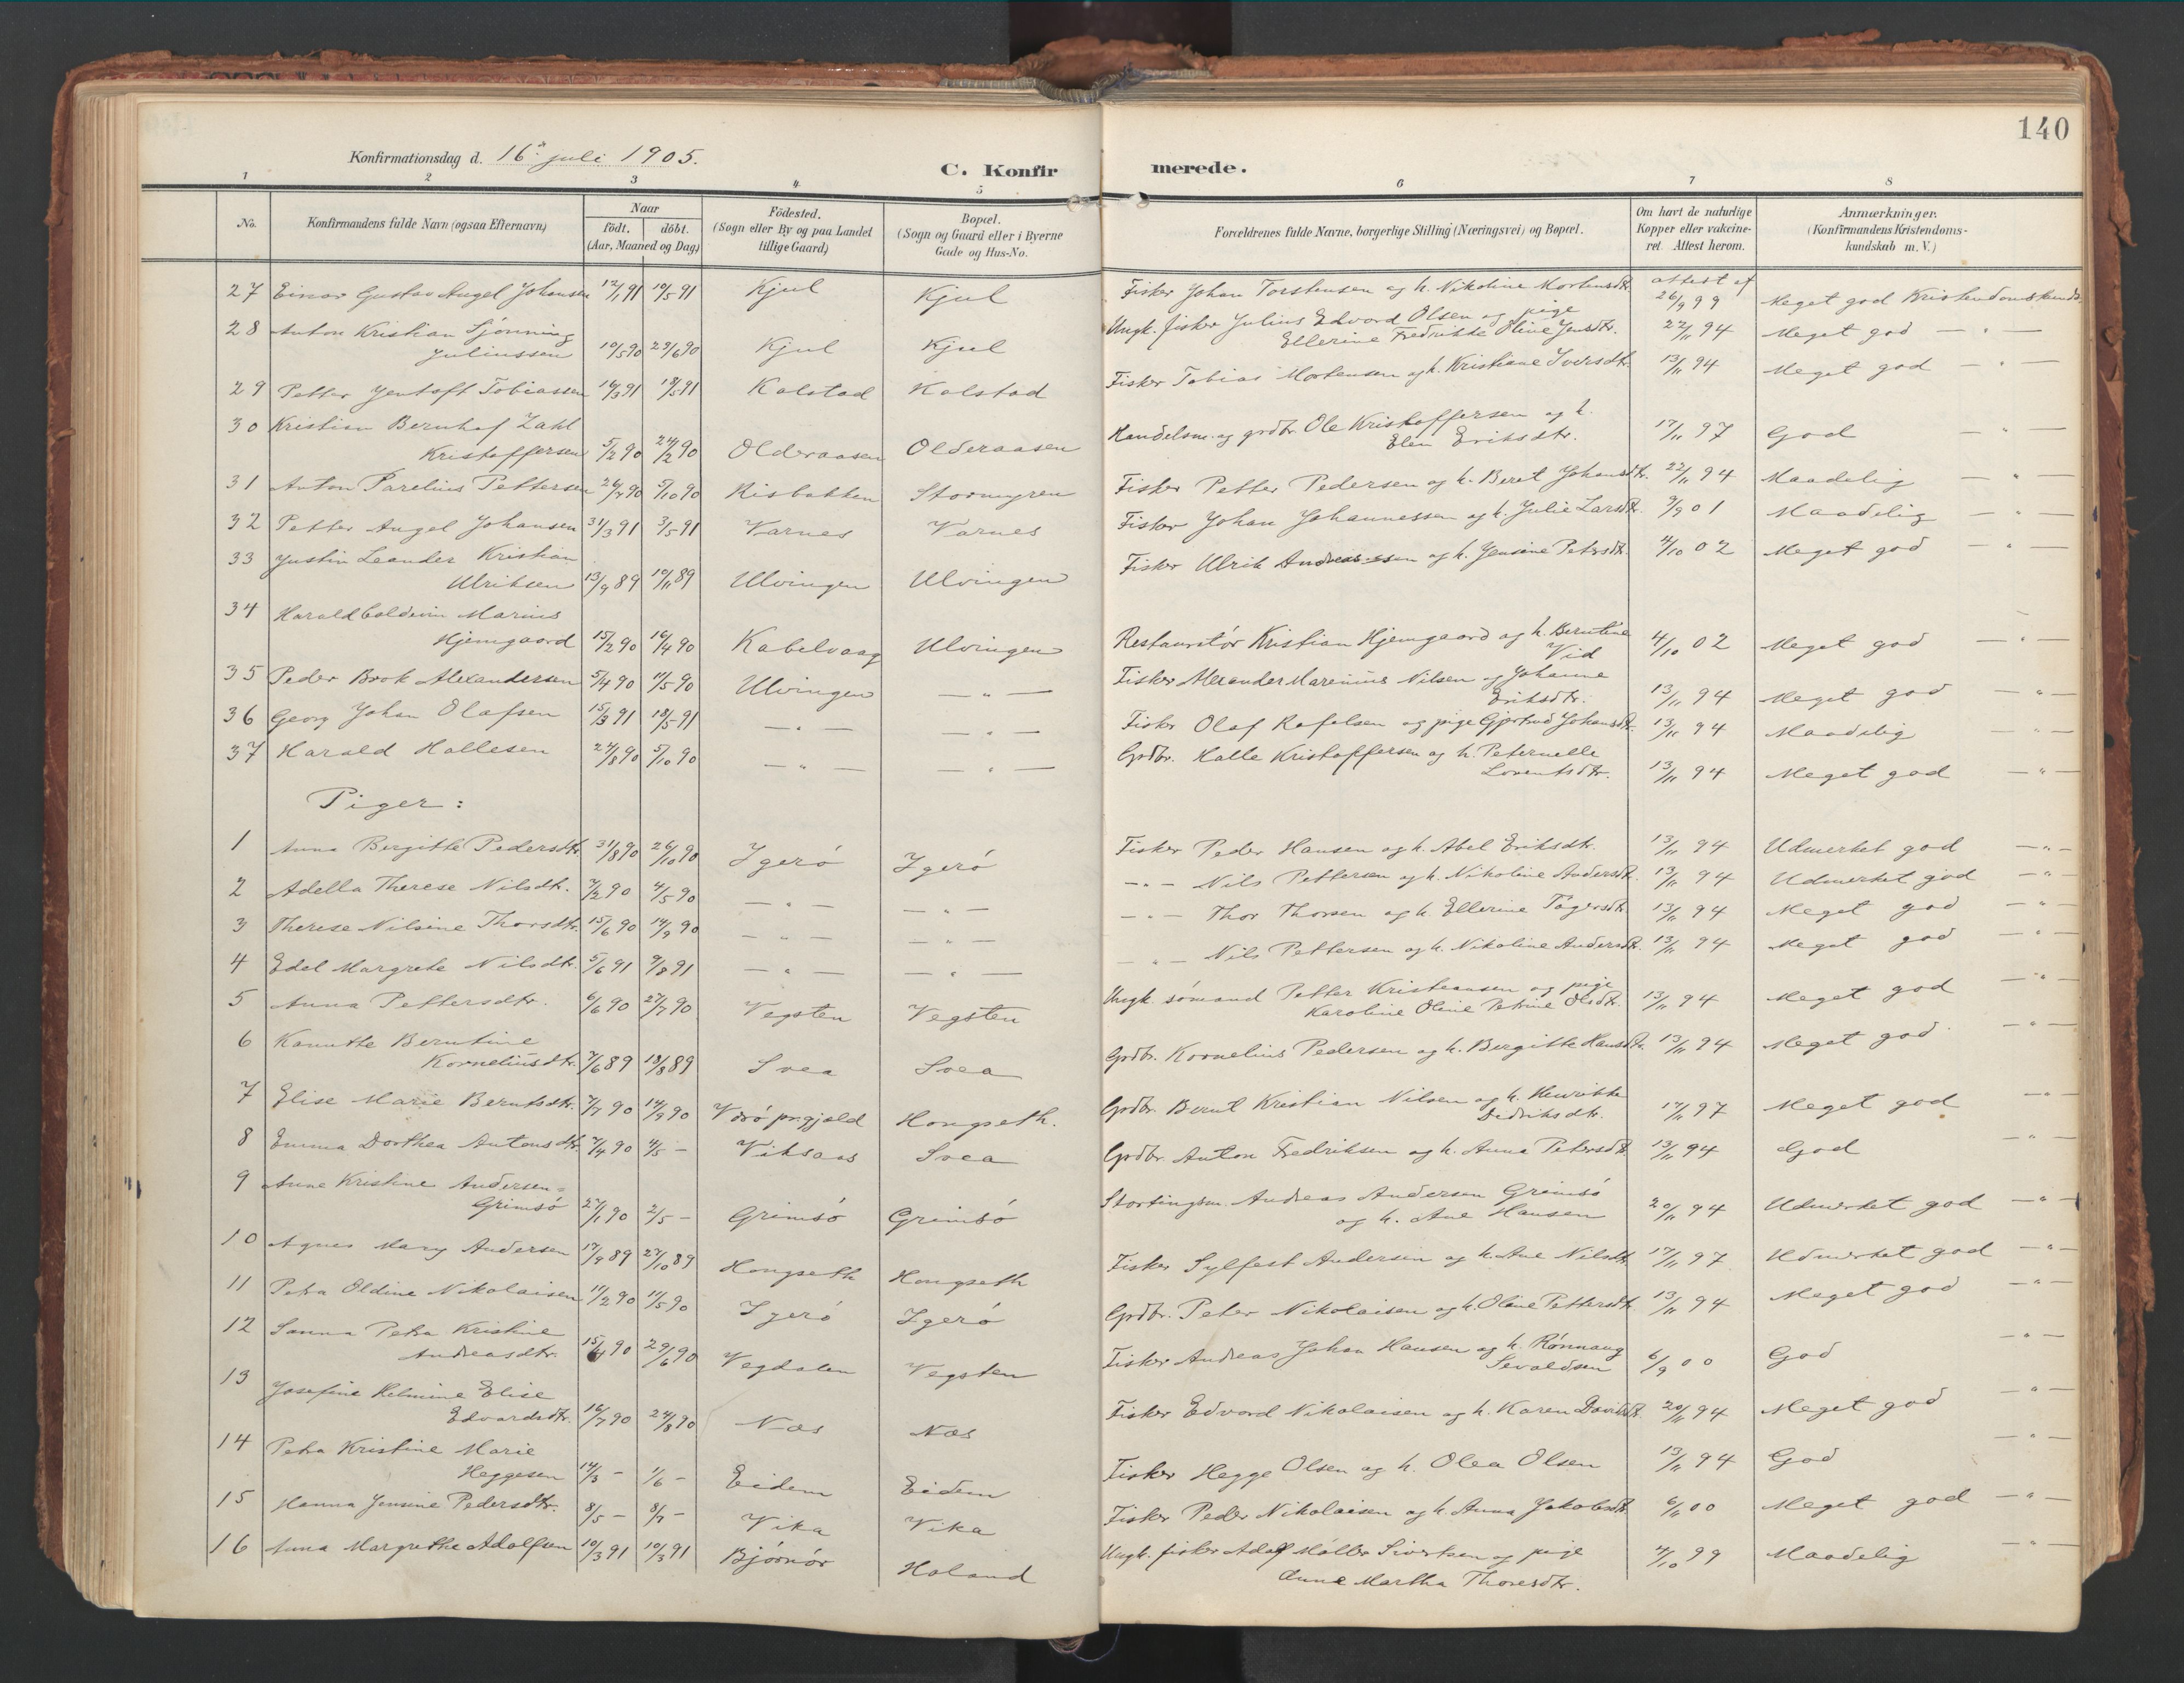 140
Konfirmationsdag d. 16de juli 1905.
C. Konfirmerede.
1 2 3 4 5 6 7 8
No. Konfirmandens fulde Navn (ogsaa Efternavn) Naar födt. döbt. (Aar, Maaned og Dag) Födested. (Sogn eller By og paa Landet tillige Gaard) Bopæl. (Sogn og Gaard eller i Byerne Gade og Hus-No. Forældrenes fulde Navne, borgerlige Stilling (Næringsvei) og Bopæl. Om havt de naturlige Kopper eller vakcineret. Attest herom. Anmærkninger. (Konfirmandens Kristendomskundskab m. V.)
27 Einar Gustav Angel Johansen 12/1 91 10/5 91 Kjul Kjul Fisker Johan Torstensen og h. Nikoline Mortensdtr. attest af 26/9 99 Meget god Kristendomskunds.
28 Anton Kristian Sjønning
Juliussen 10/5 90 29/6 90 Kjul Kjul Ungk. fisker Julius Edvard Olsen og pige
Ellerine Fredrikke Oline Jensdtr. 22/11 94 Meget god — " —
29 Petter Jentoft Tobiassen 16/3 91 18/5 91 Kalstad Kalstad Fisker Tobias Mortensen og h. Kristiane Iversdtr. 13/11 94 Meget god — " —
30 Kristian Bernhof Zahl
Kristoffersen 5/2 90 24/2 90 Olderaasen Olderaasen Handelsm. og grdbr. Ole Kristoffersen og h.
Elen Eriksdtr. 17/11 97 God — " —
31 Anton Parelius Pettersen 26/7 90 5/10 90 Risbakken Stormyren Fisker Petter Pedersen og h. Beret Johansdtr. 22/11 94 Maadelig — " —
32 Petter Angel Johansen 31/3 91 3/5 91 Varnes Varnes Fisker Johan Johannessen og h. Julie Larsdtr. 9/9 01 Maadelig — " —
33 Justin Leander Kristian
Ulriksen 13/9 89 10/11 89 Ulvingen Ulvingen Fisker Ulrik Andreassen og h. Jensine Petersdtr. 4/10 02 Meget god — " —
34 Harald Baldevin Marius
Hjemgaard 15/2 90 16/4 90 Kabelvaag Ulvingen Restauratör Kristian Hjemgaard og h. Berntine
Vid 4/10 02 Meget god — " —
35 Peder Brok Alexandersen 5/4 90 11/5 90 Ulvingen — " — Fisker Alexander Marenius Nilsen og Johanne
Eriksdtr. 13/11 94 Meget god — " —
36 Georg Johan Olafsen 15/3 91 18/5 91 — " — — " — Fisker Olaf Rafelsen og pige Gjertrud Johansdtr. 13/11 94 Maadelig — " —
37 Harald Hallesen 24/8 90 5/10 90 — " — — " — Grdbr. Halle Kristoffersen og h. Peternelle
Lorentsdtr. 13/11 94 Meget god — " —
Piger:
1 Anna Bergitte Pedersdtr. 31/8 90 26/10 90 Igerö Igerö Fisker Peder Hansen og h. Abel Eriksdtr. 13/11 94 Udmerket god — " —
2 Adella Therese Nilsdtr. 7/2 90 4/5 90 — " — — " — — " — Nils Pettersen og h. Nikoline Andersdtr. 13/11 94 Udmerket god — " —
3 Therese Nilsine Thorsdtr. 15/6 90 14/9 90 — " — — " — — " — Thor Thorsen og h. Ellerine Tagersdtr. 13/11 94 Meget god — " —
4 Edel Margrete Nilsdtr. 5/6 91 9/8 91 — " — — " — — " — Nils Pettersen og h. Nikoline Andersdtr. 13/11 94 Meget god — " —
5 Anna Pettersdtr. 6/6 90 27/7 90 Vegsten Vegsten Ungk. sömand Petter Kristiansen og pige
Karoline Oline Petrine Olsdtr. 13/11 94 Meget god — " —
6 Kanutte Berntine
Korneliusdtr. 7/6 89 18/8 89 Svea Svea Grdbr. Kornelius Pedersen og h. Bergitte Hansdtr. 13/11 94 Meget god — " —
7 Elise Marie Berntsdtr. 7/7 90 14/9 90 Værö prgjæld Hongseth. Grdbr. Bernt Kristian Nilsen og h. Henrikke
Dedriksdtr. 17/11 97 Meget god — " —
8 Emma Dorthea Antonsdtr. 7/4 90 4/5 — Viksaas Svea Grdbr. Anton Fredriksen og h. Anna Petersdtr. 13/11 94 God — " —
9 Anne Kristine Andersen=
Grimsö 27/1 90 2/5 — Grimsö Grimsö Stortingsm. Andreas Andersen Grimsö
og h. Ane Hansen 20/11 94 Udmerket god — " —
10 Agnes Mary Andersen 17/9 89 27/10 89 Hongseth Hongseth Fisker Sylfest Andersen og h. Ane Nilsdtr. 17/11 97 Udmerket god — " —
11 Petra Oldine Nikolaisen 11/2 90 11/5 90 Igerö Igerö Grdbr. Peter Nikolaisen og h. Oline Pettersdtr. 13/11 94 Meget god — " —
12 Sanna Petra Kristine
Andreasdtr. 15/4 90 29/6 90 Vegdalen Vegsten Fisker Andreas Johan Hansen og h. Rönnaug
Sevaldsen 6/9 00 God — " —
13 Josefine Helmine Elise
Edvardsdtr. 16/7 90 24/8 90 Næs Næs Fisker Edvard Nikolaisen og h. Karen Davidsdtr. 20/11 94 Meget god — " —
14 Petra Kristine Marie
Heggesen 14/3 — 1/6 — Eidem Eidem Fisker Hegge Olsen og h. Olea Olsen 13/11 94 God — " —
15 Hanna Jensine Pedersdtr. 8/5 — 8/7 — Vika Vika Fisker Peder Nikolaisen og h. Anna Jakobsdtr. 6/11 00 Meget god — " —
16 Anna Margrethe Adolfsen 10/3 91 10/3 91 Bjørnör Holand Ungk. fisker Adolf Möller Sivertsen og pige
Anne Martha Thoresdtr. 7/10 99 Maadelig — " —